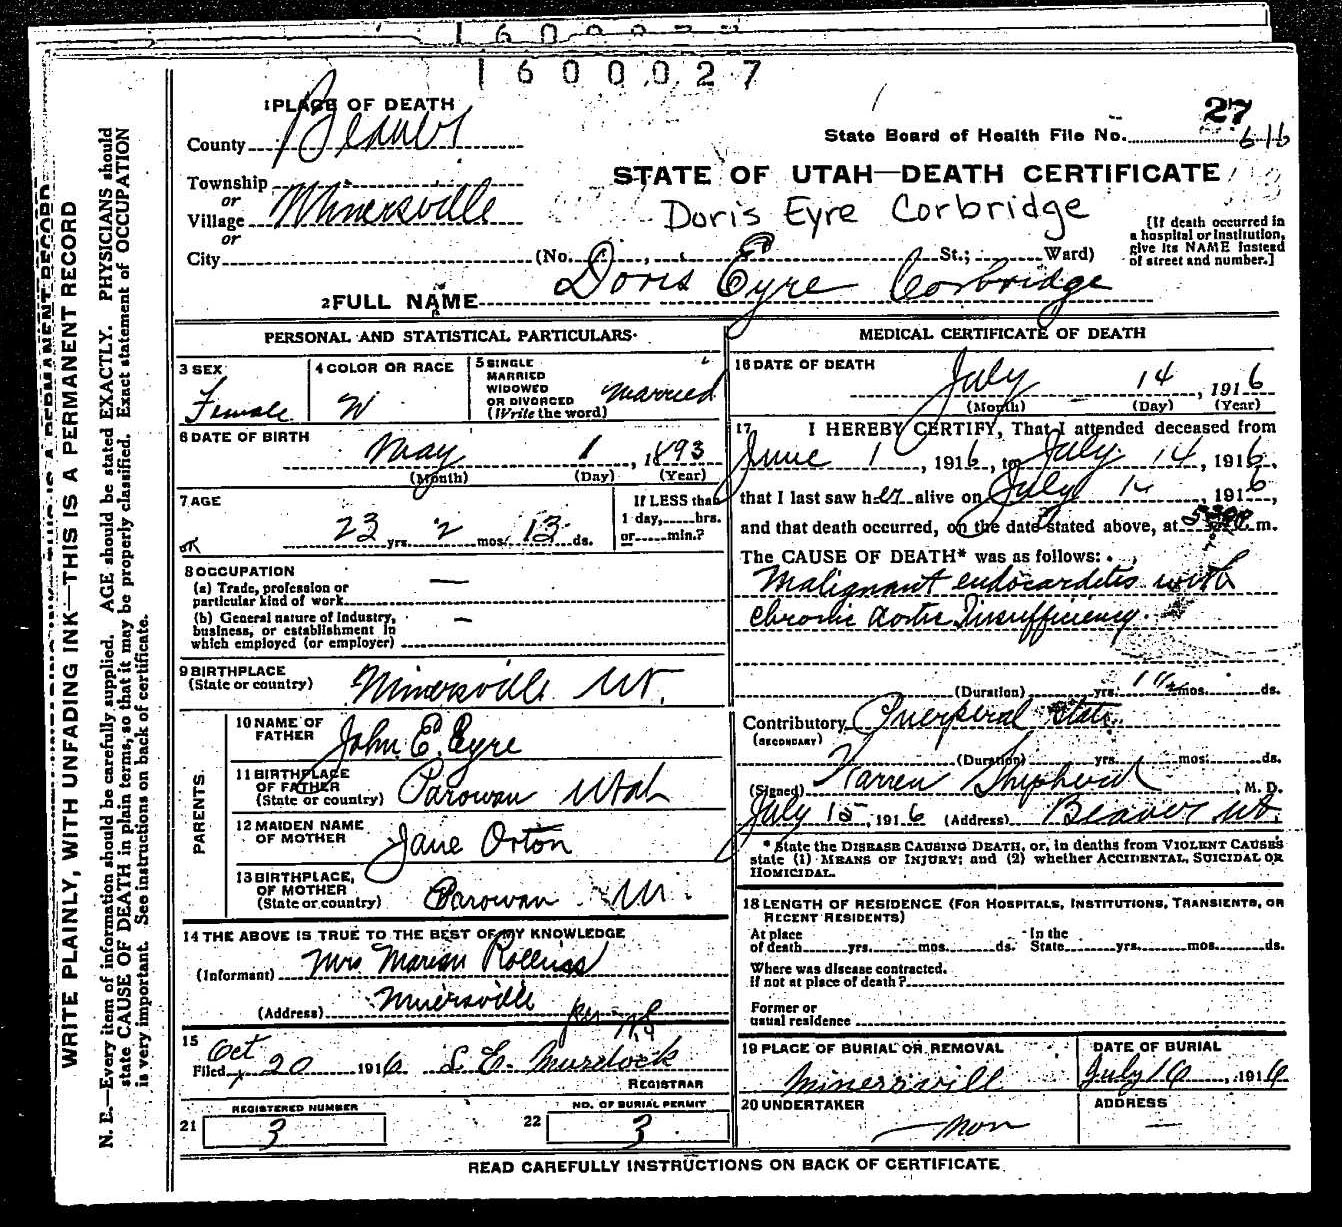 1600027
27
616
State Board of Health File No.
1 PLACE OF DEATH
County Beaver
Township
or
Village Minersville
or
City
STATE OF UTAH—DEATH CERTIFICATE
Doris Eyre Corbridge
(No. St.; Ward)
[If death occurred in
a hospital or institution,
give its NAME instead
of street and number.]
2 FULL NAME Doris Eyre Corbridge
PERSONAL AND STATISTICAL PARTICULARS
3 SEX
Female
4 COLOR OR RACE
W
5 SINGLE
MARRIED
WIDOWED
OR DIVORCED
(Write the word)
married
6 DATE OF BIRTH
May 1, 1893
(Month) (Day) (Year)
7 AGE
23 yrs. 2 mos. 13 ds.
If LESS than
1 day, hrs.
or min.?
OK
8 OCCUPATION
(a) Trade, profession or
particular kind of work —
(b) General nature of industry,
business, or establishment in
which employed (or employer) —
9 BIRTHPLACE
(State or country) Minersville Ut.
PARENTS
10 NAME OF
FATHER John E. Eyre
11 BIRTHPLACE
OF FATHER
(State or country) Parowan Utah
12 MAIDEN NAME
OF MOTHER Jane Orton
13 BIRTHPLACE,
OF MOTHER
(State or country) Parowan Ut.
14 THE ABOVE IS TRUE TO THE BEST OF MY KNOWLEDGE
(Informant) Mrs Marion Rollins
(Address) Minersville
per
15
Filed Oct 20 1916 L. E. Murdock
REGISTRAR
REGISTERED NUMBER
21 3
NO. OF BURIAL PERMIT
22 3
MEDICAL CERTIFICATE OF DEATH
16 DATE OF DEATH
July 14, 1916
(Month) (Day) (Year)
17 I HEREBY CERTIFY, That I attended deceased from
June 1, 1916, to July 14, 1916,
that I last saw her alive on July 14, 1916,
and that death occurred, on the date stated above, at m.
The CAUSE OF DEATH* was as follows:
Malignant endocarditis with
chronic aortic Insufficiency
(Duration) yrs. 1 1/2 mos. ds.
Contributory Puerperal state
(SECONDARY)
(Duration) yrs. mos. ds.
(Signed) Warren Shepherd, M. D.
July 15, 1916 (Address) Beaver Ut.
* State the DISEASE CAUSING DEATH, or, in deaths from VIOLENT CAUSES
state (1) MEANS OF INJURY; and (2) whether ACCIDENTAL, SUICIDAL OR
HOMICIDAL.
18 LENGTH OF RESIDENCE (FOR HOSPITALS, INSTITUTIONS, TRANSIENTS, OR
RECENT RESIDENTS)
At place
of death yrs. mos. ds.
In the
State yrs. mos. ds.
Where was disease contracted.
if not at place of death?
Former or
usual residence
19 PLACE OF BURIAL OR REMOVAL
Minersvill
DATE OF BURIAL
July 16, 1916
20 UNDERTAKER
— non
ADDRESS
—
READ CAREFULLY INSTRUCTIONS ON BACK OF CERTIFICATE
WRITE PLAINLY, WITH UNFADING INK—THIS IS A PERMANENT RECORD
N. E.—Every item of information should be carefully supplied. AGE should be stated EXACTLY. PHYSICIANS should
state CAUSE OF DEATH in plain terms, so that it may be properly classified. Exact statement of OCCUPATION
is very important. See instructions on back of certificate.